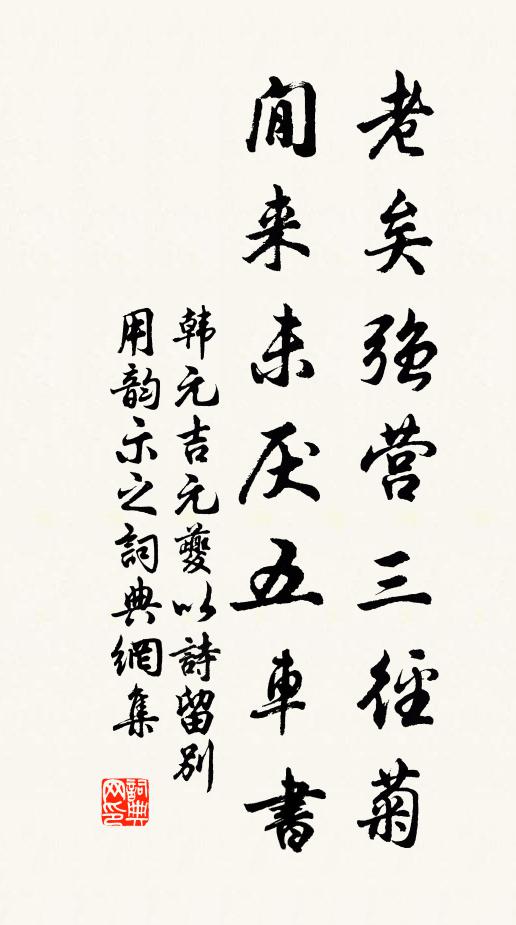 老矣强营三径菊
闲来未厌五車書
韩元吉元夔以詩留別
用韵示之詞典網集
詞典
网印